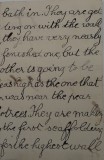 bath in They are get
ting on with the wall
they have very nearly
finished one but the
other is going to be
as high as the one that
was near the pear
trees They are making
the first scaffolding
for the highest wall